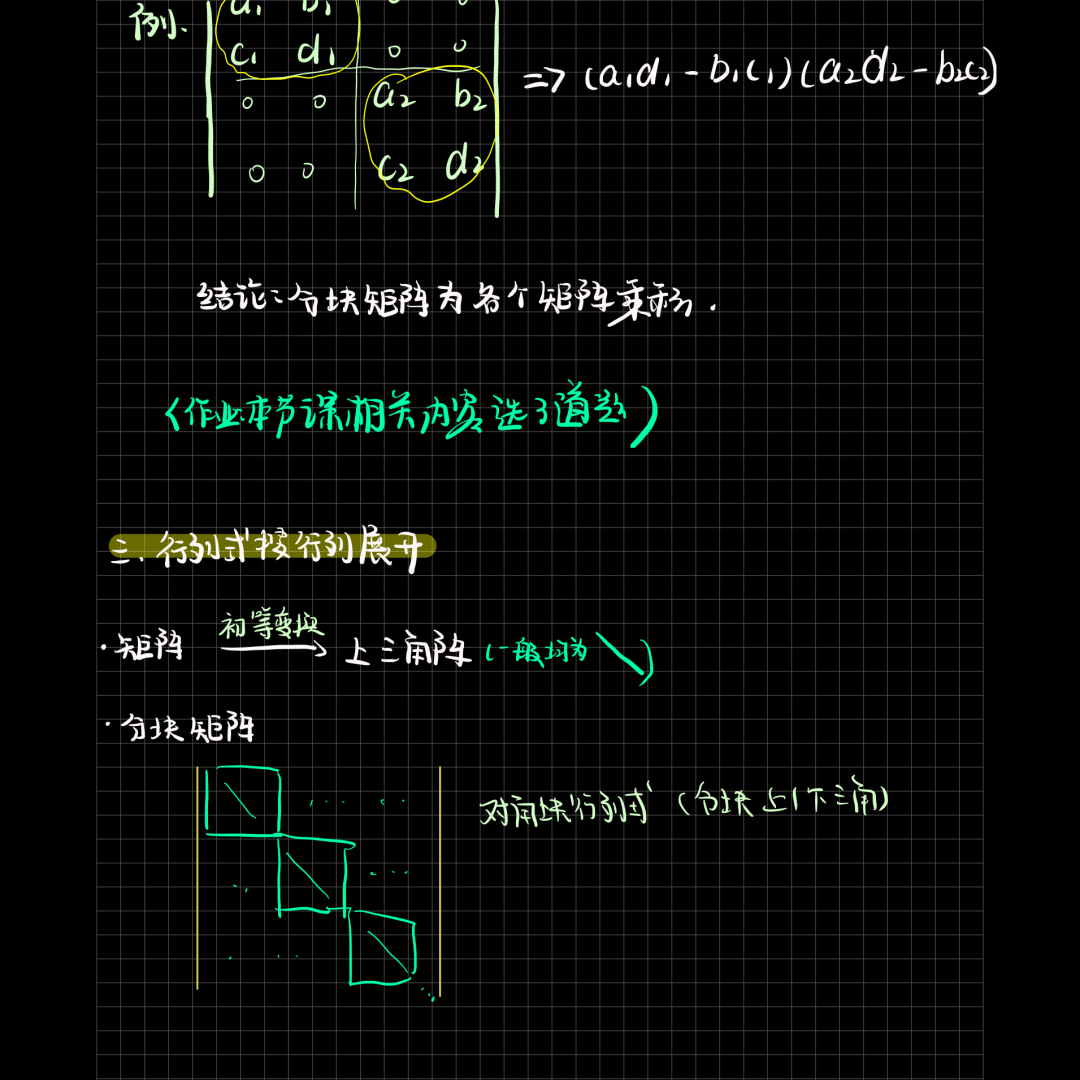 例、
a₁ b₁ 0 0
c₁ d₁ 0 0
0 0 a₂ b₂
0 0 c₂ d₂
=> (a₁d₁-b₁c₁)(a₂d₂-b₂c₂)
结论:分块矩阵为各个矩阵乘积.
(作业:本节课相关内容选3道题)
三、行列式按行列展开
·矩阵 初等变换 上三角阵 (一般均为\)
·分块矩阵
对角块行列式 (分块上/下三角)